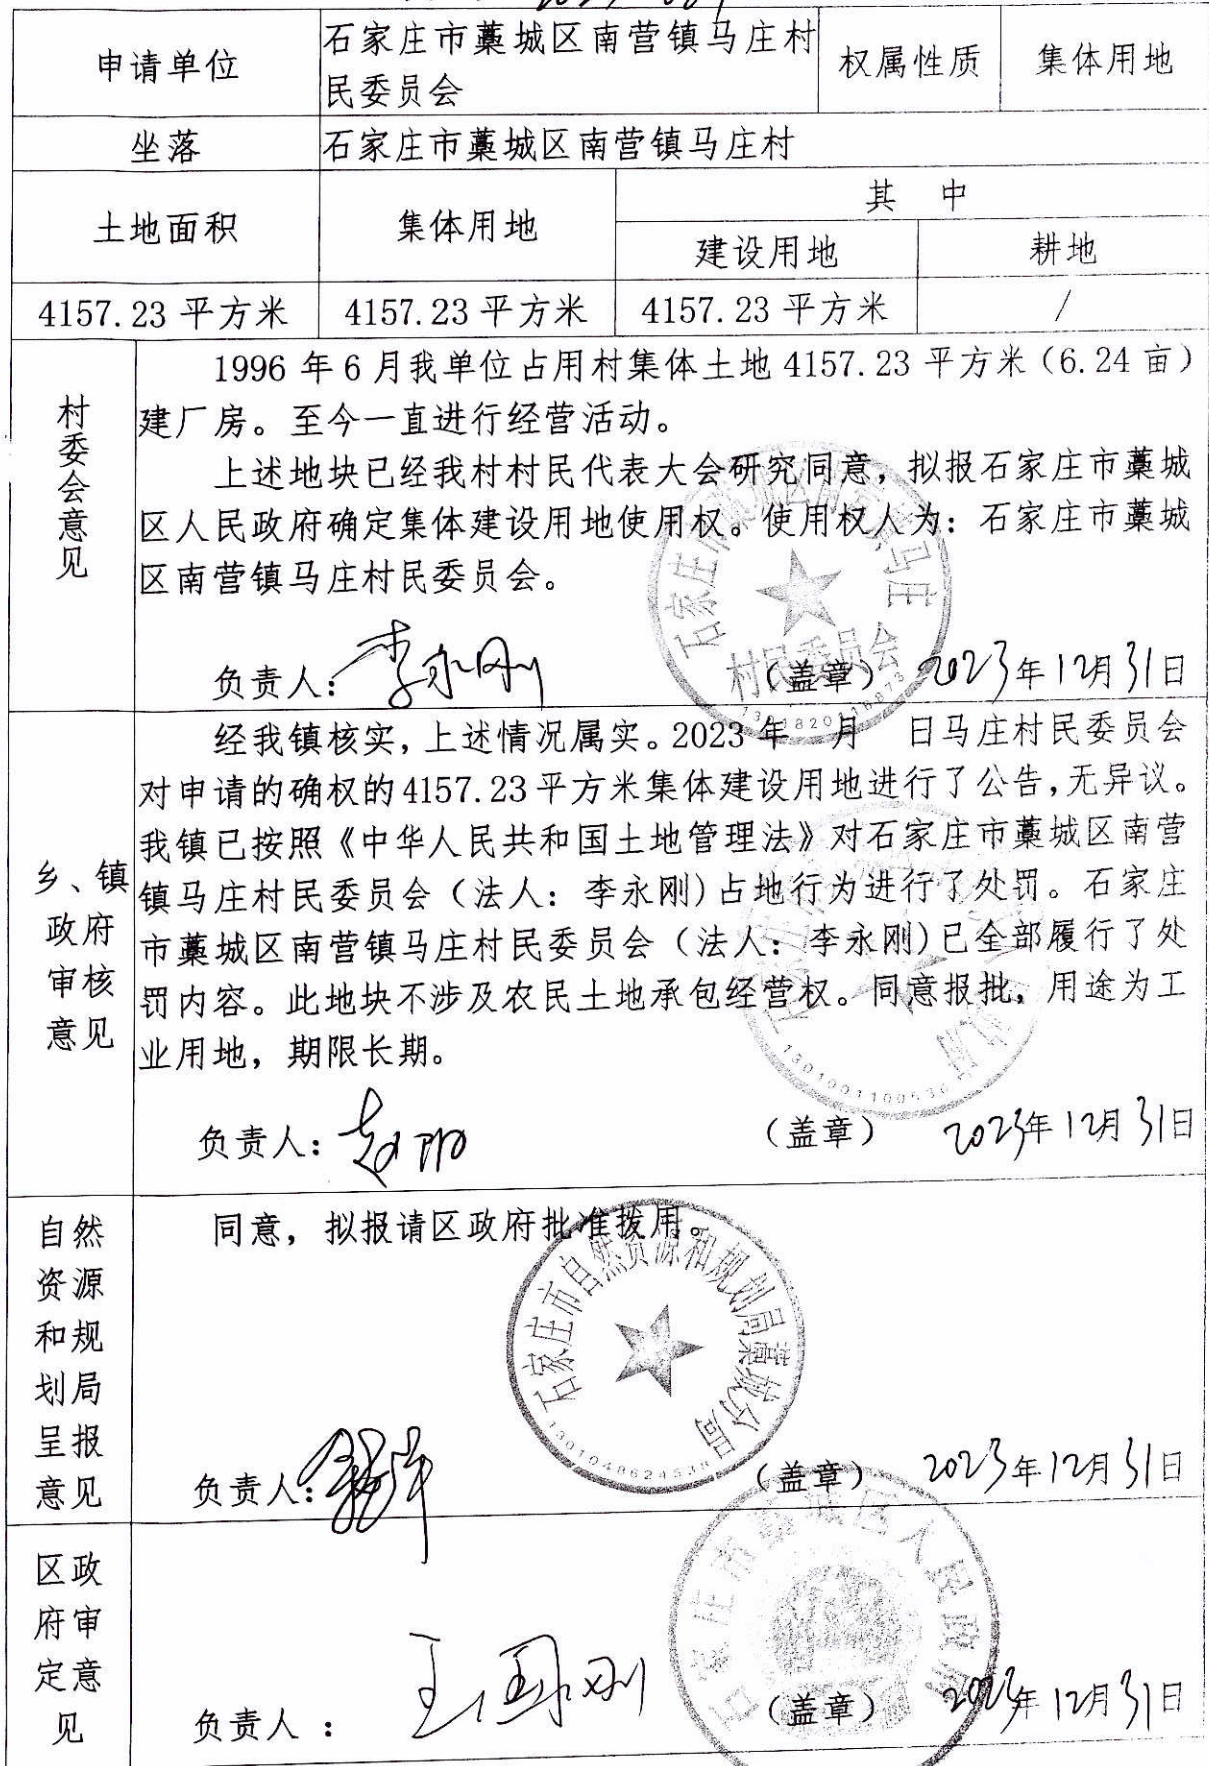 申请单位
石家庄市藁城区南营镇马庄村
民委员会
权属性质
集体用地
坐落
石家庄市藁城区南营镇马庄村
土地面积
集体用地
其 中
建设用地
耕地
4157.23平方米
4157.23平方米
4157.23平方米
/
村委会意见
1996年6月我单位占用村集体土地4157.23平方米（6.24亩）
建厂房。至今一直进行经营活动。
上述地块已经我村村民代表大会研究同意，拟报石家庄市藁城
区人民政府确定集体建设用地使用权。使用权人为：石家庄市藁城
区南营镇马庄村民委员会。
负责人：李永刚
（盖章） 2023年12月31日
村民委员会
乡、镇
政府
审核
意见
经我镇核实，上述情况属实。2023年 月 日马庄村民委员会
对申请的确权的4157.23平方米集体建设用地进行了公告，无异议。
我镇已按照《中华人民共和国土地管理法》对石家庄市藁城区南营
镇马庄村民委员会（法人：李永刚）占地行为进行了处罚。石家庄
市藁城区南营镇马庄村民委员会（法人：李永刚）已全部履行了处
罚内容。此地块不涉及农民土地承包经营权。同意报批，用途为工
业用地，期限长期。
负责人：
（盖章） 2023年12月31日
自然
资源
和规
划局
呈报
意见
同意，拟报请区政府批准拨用。
石家庄市自然资源和规划局藁城分局
1301048624538
负责人：
（盖章） 2023年12月31日
区政
府审
定意
见
石家庄市藁城区人民政府
负责人：王国刚
（盖章） 2023年12月31日